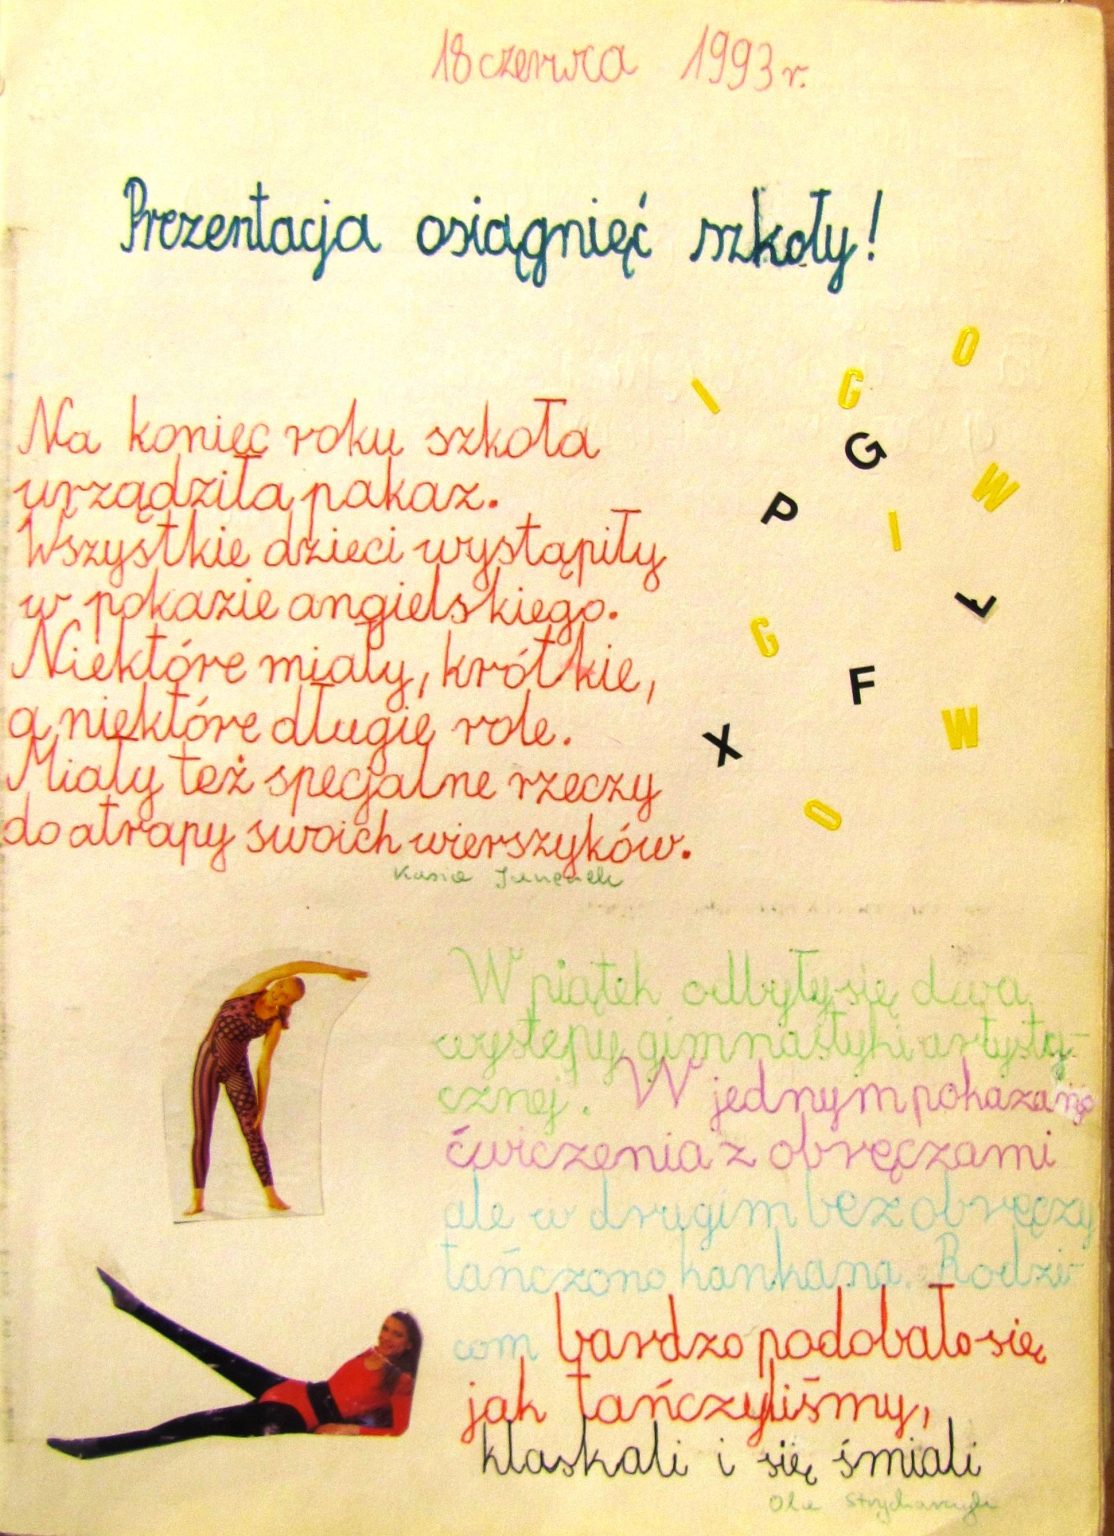 18 czerwca 1993 r.
Prezentacja osiągnięć szkoły!
I G O
G
P W
I
Ł
G
F
X W
O
Na koniec roku szkoła
urządziła pakaz.
Wszystkie dzieci wystąpiły
w pokazie angielskiego.
Niektóre miały, krótkie,
a niektóre długie role.
Miały też specjalne rzeczy
do atrapy swoich wierszyków.
Kasia
W piątek odbyły się dwa
występy gimnastyki artysty-
cznej. W jednym pokazano
ćwiczenia z obręczami
ale w drugim bez obręczy
tańczono kankana. Rodzi-
com bardzo podobało się
jak tańczyliśmy,
klaskali i się śmiali
Ola Strycharczyk